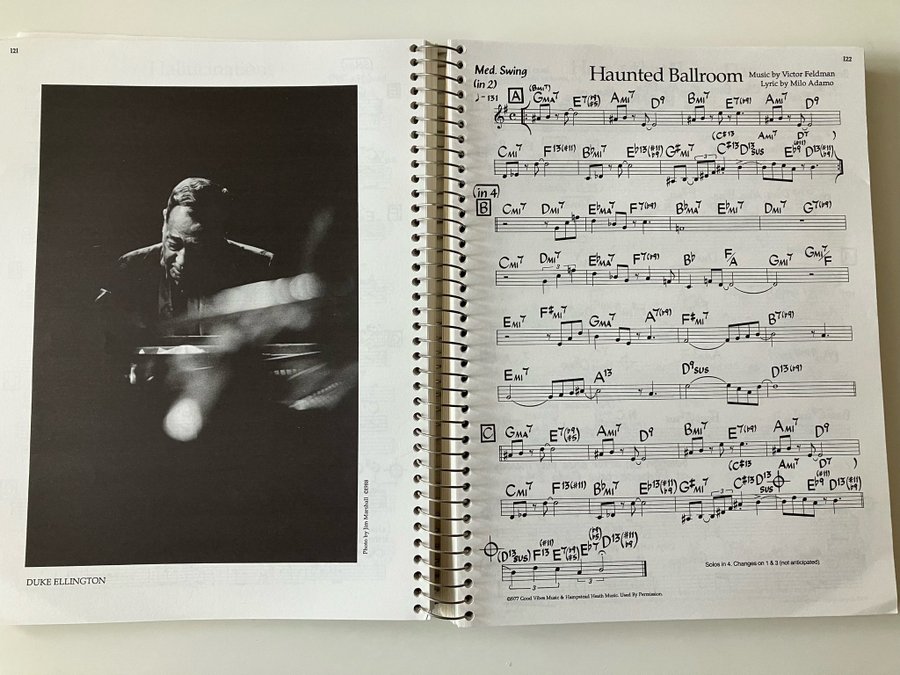 121
Photo by Jim Marshall ©1988
DUKE ELLINGTON
122
Med. Swing
(in 2)
♩=131
Haunted Ballroom
Music by Victor Feldman
Lyric by Milo Adamo
A (Bmi7) Gma7 E7(♭9 ♯5) Ami7 D9 Bmi7 E7(♭9) Ami7 D9
(C♯13 Ami7 D7 )
Cmi7 F13(♯11) B♭mi7 E♭13(♯11 ♭9) G♯mi7 C♯13 D13sus E♭9(♯11) D13(♯11 ♭9)
(in 4)
B Cmi7 Dmi7 E♭ma7 F7(♭9) B♭ma7 E♭mi7 Dmi7 G7(♭9)
Cmi7 Dmi7 E♭ma7 F7(♭9) B♭ F/A Gmi7 Gmi7/F
Emi7 F♯mi7 Gma7 A7(♭9) F♯mi7 B7(♭9)
Emi7 A13 D9sus D13(♭9)
C Gma7 E7(♭9 ♯5) Ami7 D9 Bmi7 E7(♭9) Ami7 D9
(C♯13 Ami7 D7 )
Cmi7 F13(♯11) B♭mi7 E♭13(♯11 ♭9) G♯mi7 C♯13 D13sus E♭9(♯11) D13(♯11 ♭9)
(D13sus) F13(♯11) E7(♭9 ♯5) E♭7 D13(♯11 ♭9)
Solos in 4. Changes on 1 & 3 (not anticipated).
©1977 Good Vibes Music & Hampstead Heath Music. Used By Permission.